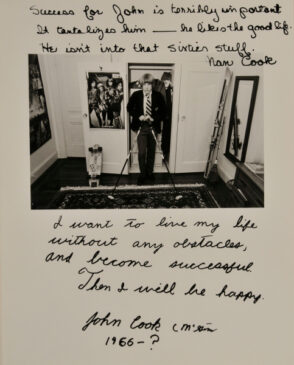 Success for John is terribly important
It tantalizes him — he likes the good life.
He isn't into that sixties stuff.
Nan Cook
I want to live my life
without any obstacles,
and become successful.
Then I will be happy.
John Cook
1966-?